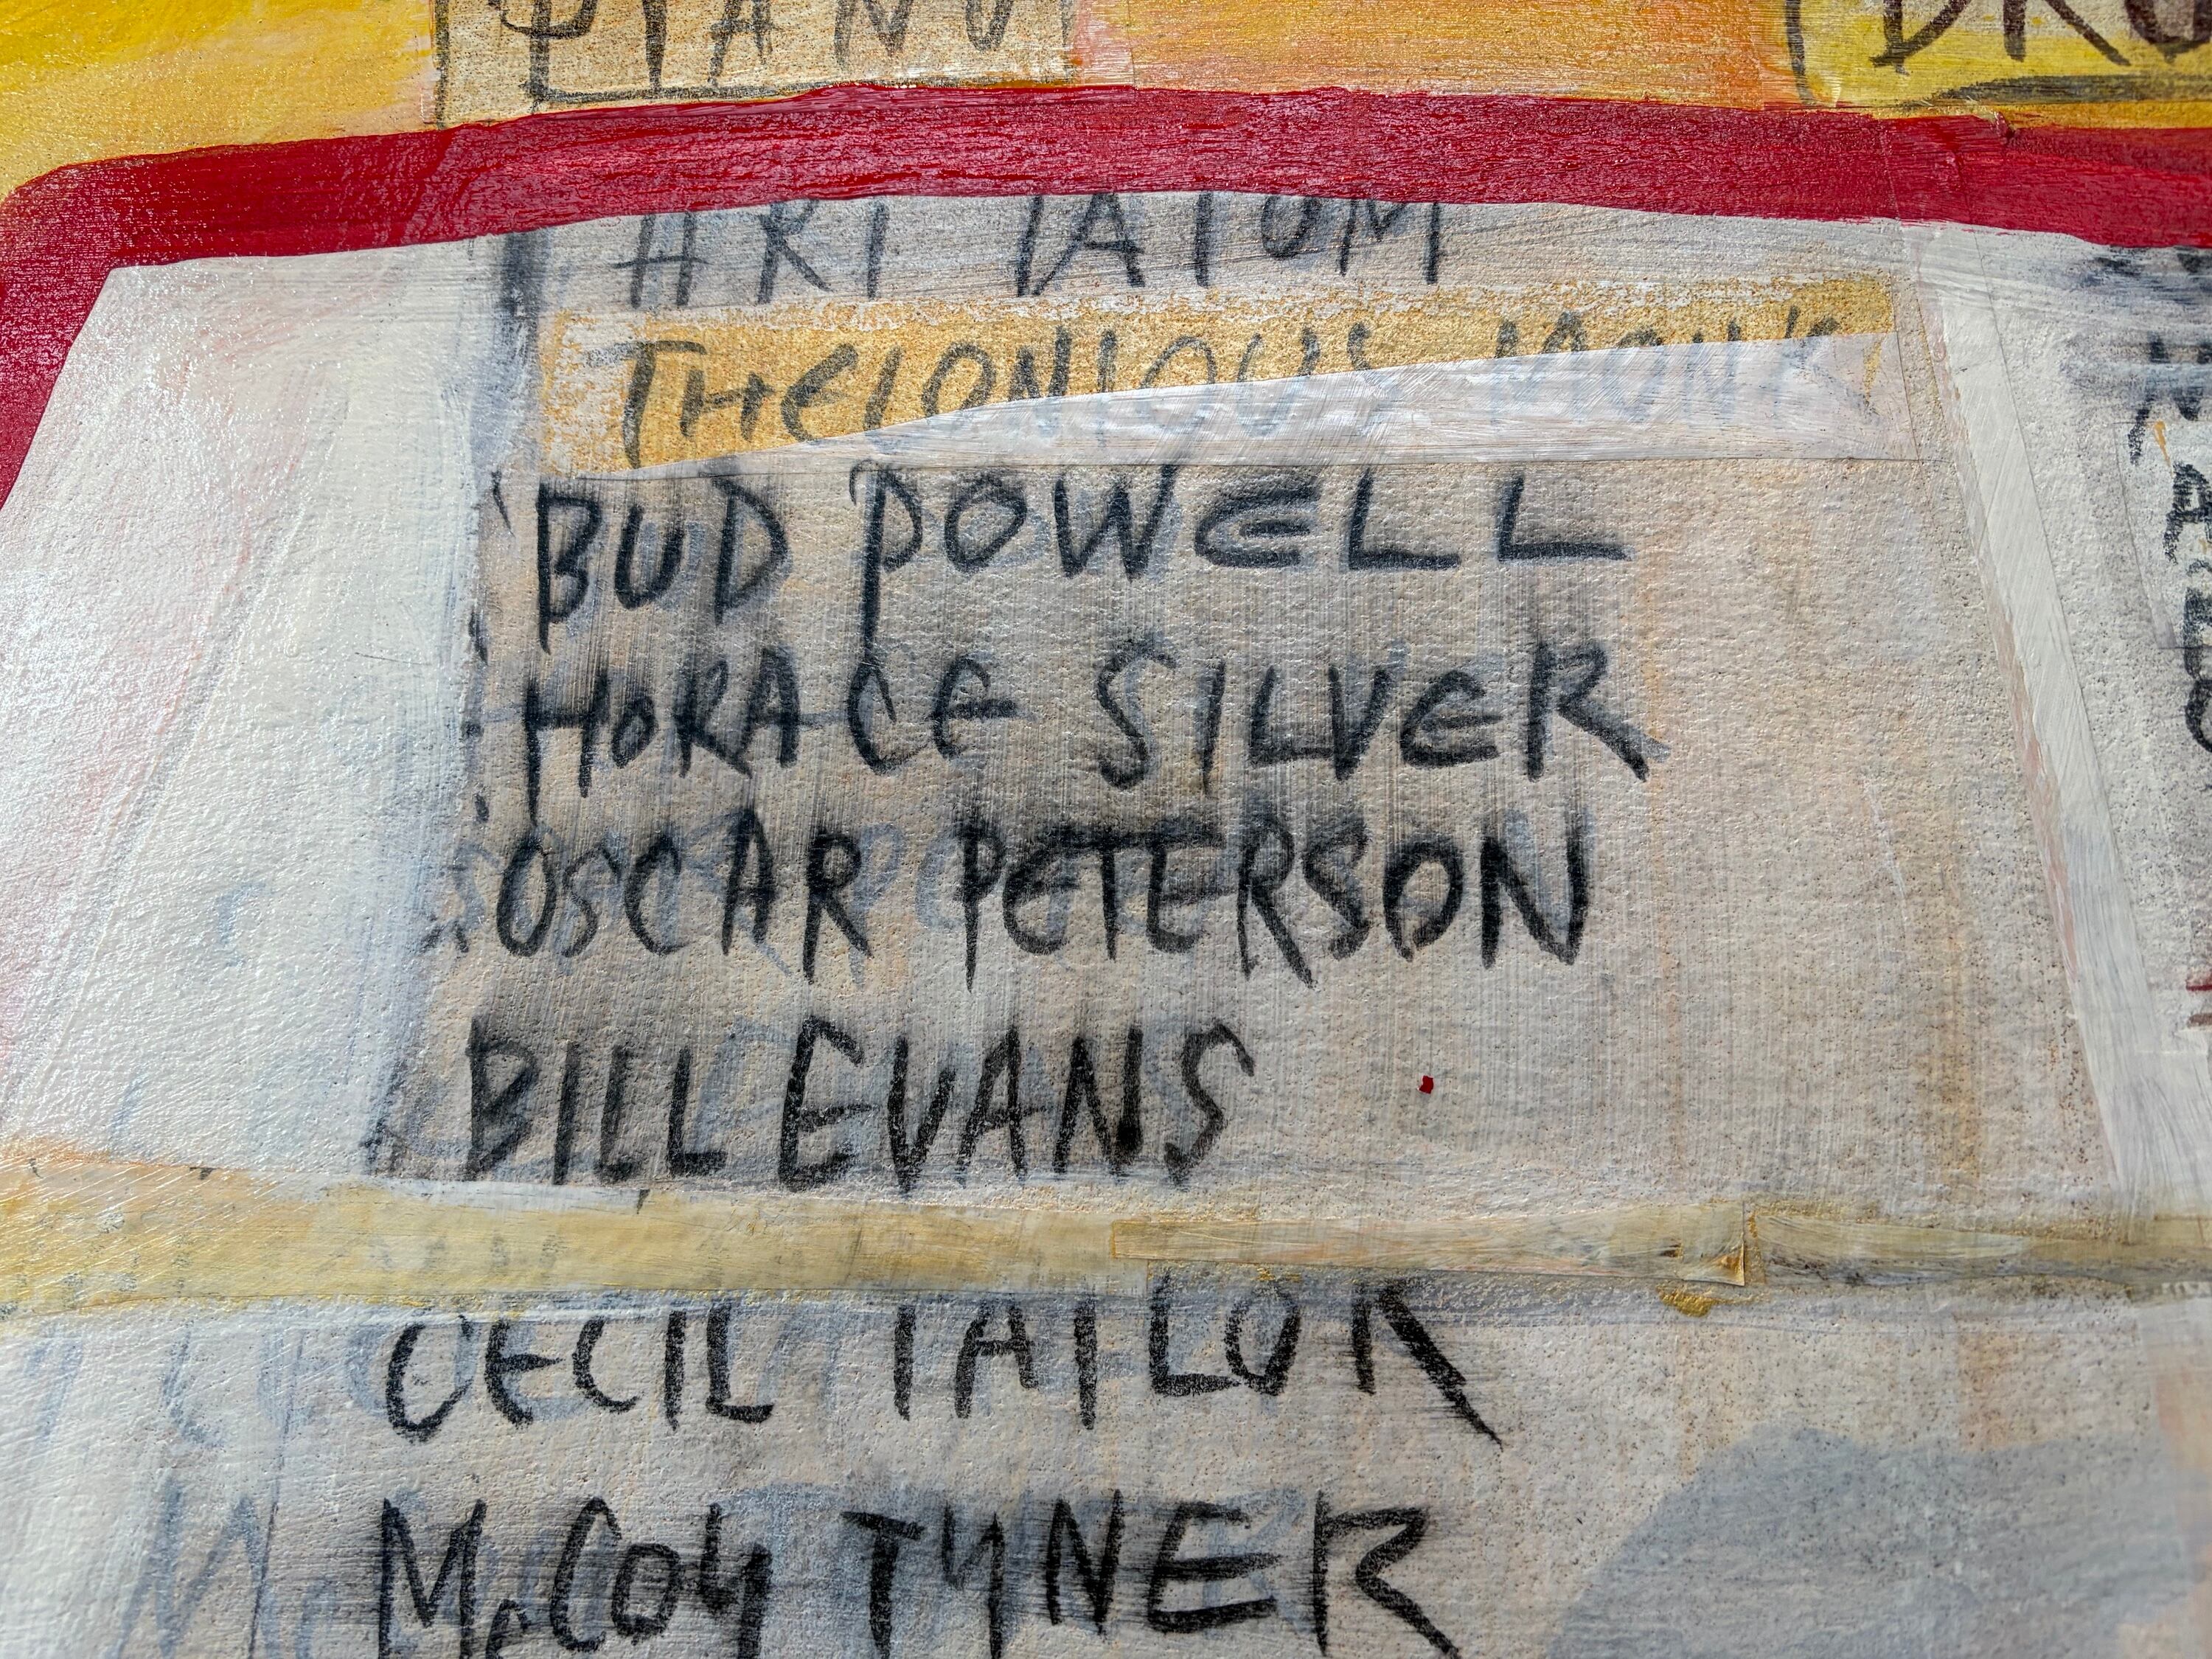 PIANO
ART TATUM
THELONIOUS MONK
BUD POWELL
HORACE SILVER
OSCAR PETERSON
BILL EVANS
CECIL TAILOR
McCOY TYNER